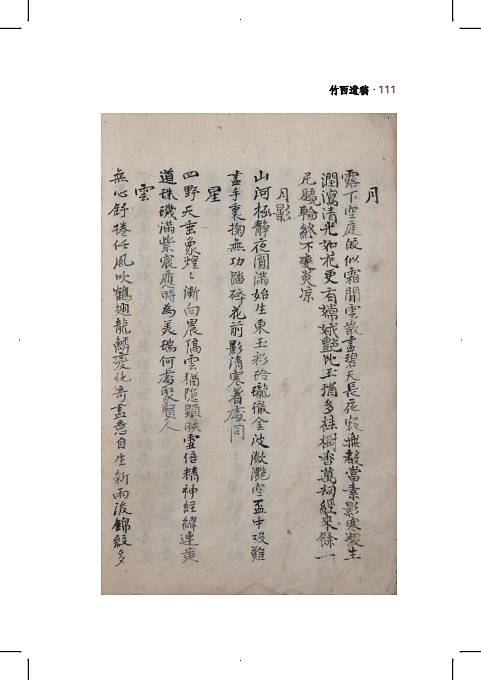 竹西遺稿 · 111
月
露下空庭皎似霜閒雲散盡碧天長夜寂無聲當素影寒凝生
潤瀉清光如花更有嫦娥艶比玉猶多桂樹香萬劫經來餘一
尼體輪終不變炎凉
月影
山河極靜夜圓滿始生東玉彩玲瓏徹金波瀲灧空盃中吸難
盡手裏掬無功踏碎花前影清寒着處同
星
四野天垂象煌〻漸向晨隔雲猶隱顯映雪倍精神經緯連黃
道珠璣滿紫宸應時為美瑞何處聚賢人
雲
無心舒捲任風吹鶴翅龍鱗變化奇盡意自生新雨後錦紋多